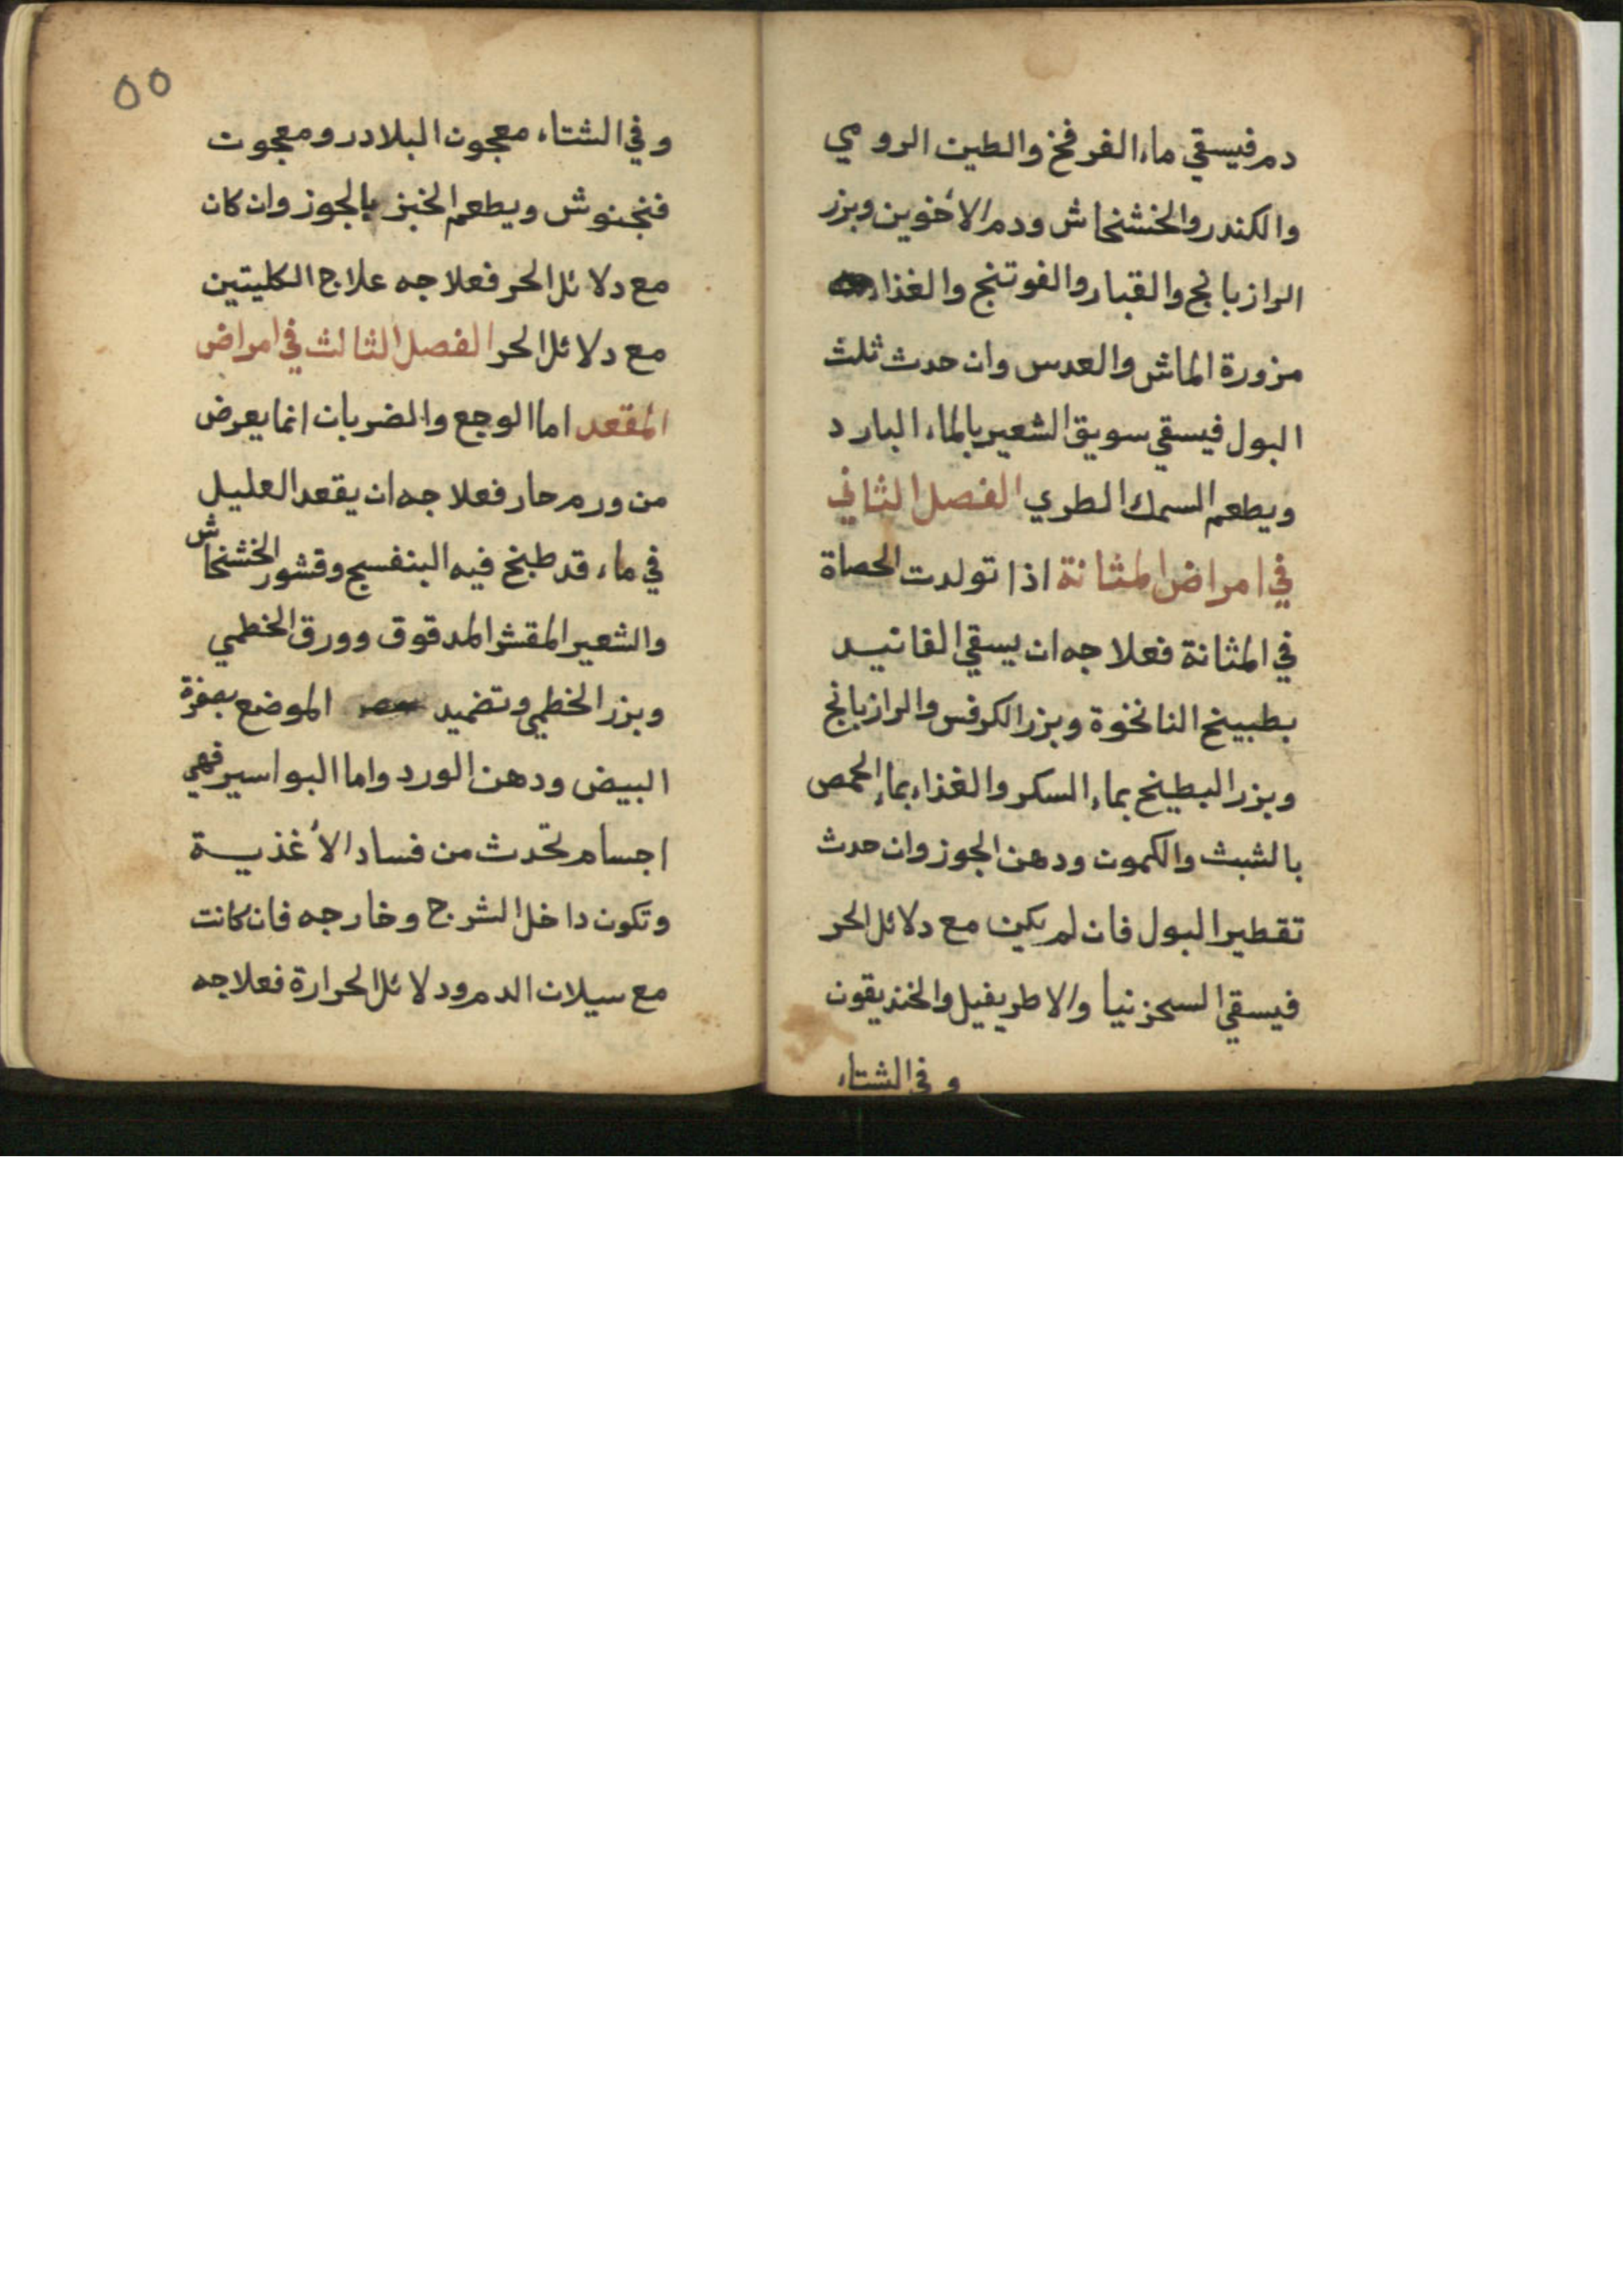 دم فيسقي ماء الفرفخ والطين الرومي
والكندر والخشخاش ودم الأخوين وبزر
الرازيانج والقبار والفوتنج والغذاء
مزورة الماش والعدس وان حدث ثلث
البول فيسقي سويق الشعير بالماء البارد
ويطعم السمك الطري الفصل الثاني
في امراض المثانة اذا تولدت الحصاة
في المثانة فعلاجه ان يسقي الفانيد
بطبيخ النانخوة وبزر الكرفس والرازيانج
وبزر البطيخ بماء السكر والغذاء بماء الحمص
بالشبث والكمون ودهن الجوز وان حدث
تقطير البول فان لم يكن مع دلائل الحر
فيسقي السجزنيا والاطريفيل والخنديقون
وفي الشتاء
٥٥
وفي الشتاء معجون البلادر ومعجون
فنجنوش ويطعم الخبز بالجوز وان كان
مع دلائل الحر فعلاجه علاج الكليتين
مع دلائل الحر الفصل الثالث في امراض
المقعد اما الوجع والضربان انما يعرض
من ورم حار فعلاجه ان يقعد العليل
في ماء قد طبخ فيه البنفسج وقشور الخشخاش
والشعير المقشر المدقوق وورق الخطمي
وبزر الخطمي وتضميد الموضع بصفرة
البيض ودهن الورد واما البواسير فهي
اجسام تحدث من فساد الأغذية
وتكون داخل الشرج وخارجه فان كانت
مع سيلان الدم ودلائل الحرارة فعلاجه